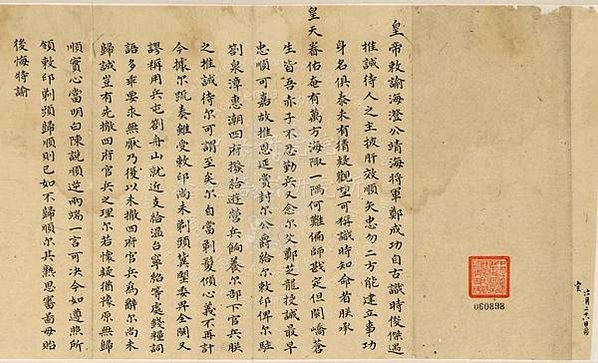 皇帝敕諭海澄公靖海將軍鄭成功自古識時俊傑遇
推誠待人之主披肝效順矢忠勿二方能建立事功
身名俱泰未有猜疑觀望可稱識時知命者朕承
皇天眷佑奄有萬方海陬一隅何難偏師戡定但閩嶠蒼
生皆吾赤子不忍勤兵又念尔父鄭芝龍投誠最早
忠順可嘉故推恩延賞封尔公爵給尔敕印俾尔駐
劄泉漳惠潮四府撥給遊營兵餉養尔部下官兵朕
之推誠待尔可謂至矣尔自當剃髮傾心義不再計
今據尔疏奏雖受敕印尚未剃頭冀望委畀全閩又
謬稱用兵屯劄舟山就近支給溫台寧紹等處錢糧詞
語多乖要求無厭乃復以未撤四府官兵為辭尔尚未
歸誠豈有先撤四府官兵之理尔若懷疑猶豫原無歸
順實心當明白陳說順逆兩端一言可決今如遵照所
領敕印剃頭歸順則已如不歸順尔其熟思審圖毋貽
後悔特諭
060898